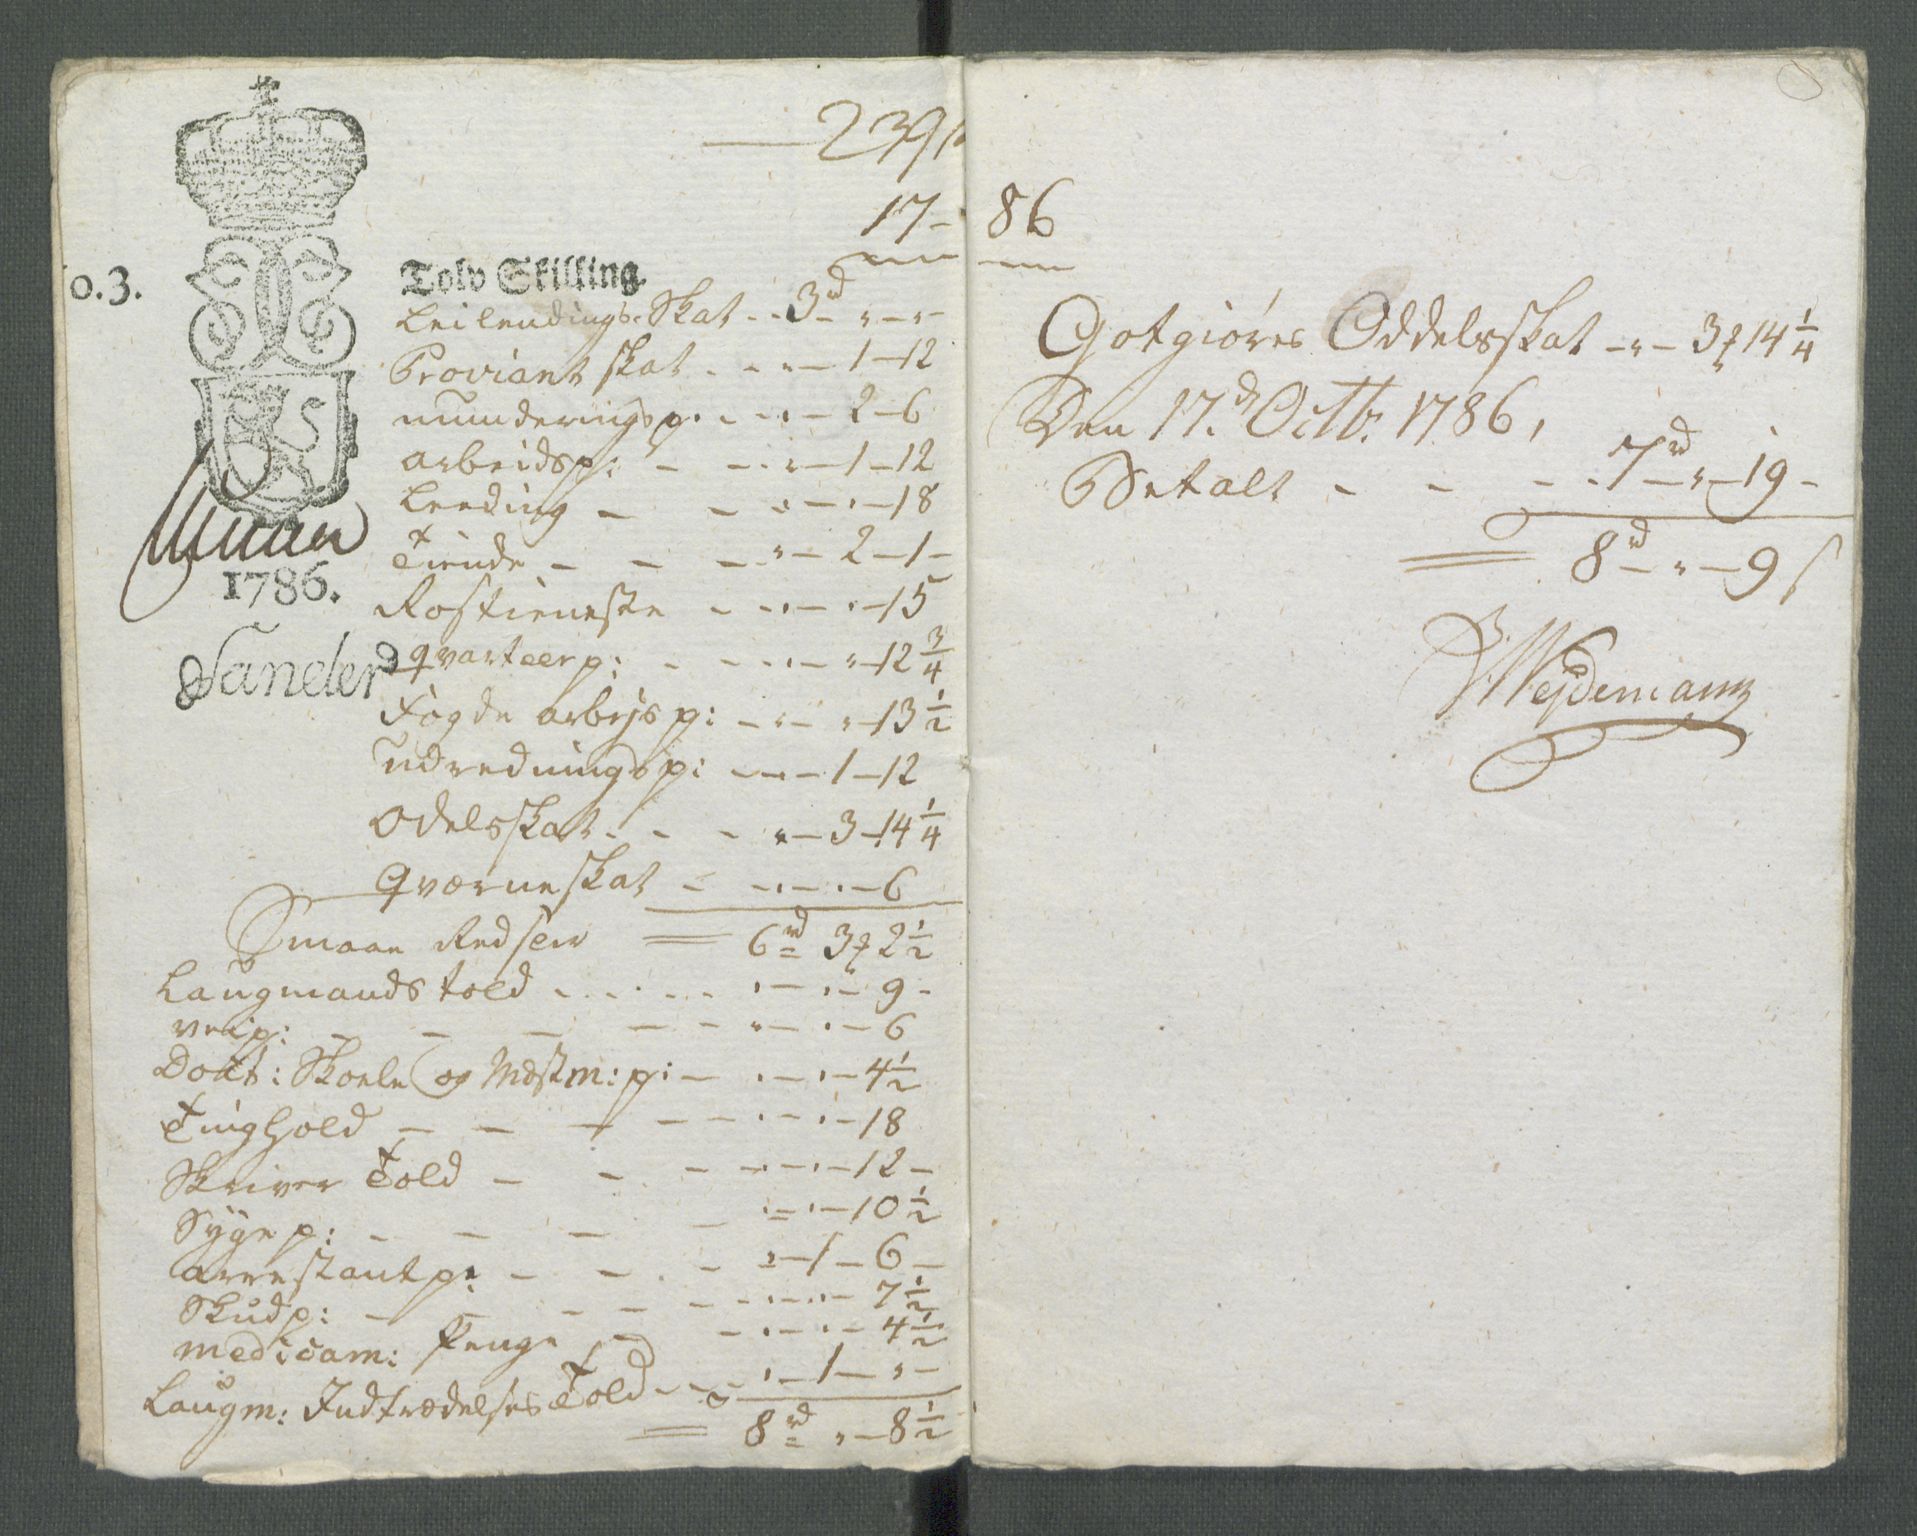 239
17 - 86
o. 3.
Tolv Skilling.
Leilendings Skat - - 3rd - " - " -
Proviant skat - - " - 1 - 12
munderingsp: - - " - 2 - 6
arbeidsp: - - " - 1 - 12
Leeding - - " - " - 18
Tiende - - - " - 2 - 1 -
Rostieneste - - " - " - 15
qvarteerp: - - " - " - 12 3/4
Fogde arbejs p: - " - " - 13 1/2
udredningsp: - " - 1 - 12
Odelsskat - - - " - 3 - 14 1/4
Qværneskat - - " - " - 6
1786.
Sander
Smaae Redsler = 6rd 3 f 2 1/2
Laugmandstold - - - " - " - 9 -
veip: - - - - " - " - 6
Doct: Skoele og Mæstm: p: - " - " - 4 1/2
Tinghold - - - - " - " - 18
Skriver Told - - - " - " - 12 -
Syge p: - - - - " - " - 10 1/2
arrestantp: - - - " - 1 - 6 -
Skudp: - - - - " - " - 7 1/2
medicam: Penge - - " - " - 4 1/2
Laugm: Indtrædelses Told - - " - 1 - " -
= 8rd " - 8 1/2
Gotgiøres Oddelsskat - " - 3 f 14 1/4
Den 17d Octbr: 1786,
Betalt - - - - 7rd - " - 19 -
= 8rd - " - 9 s
Wejdemann